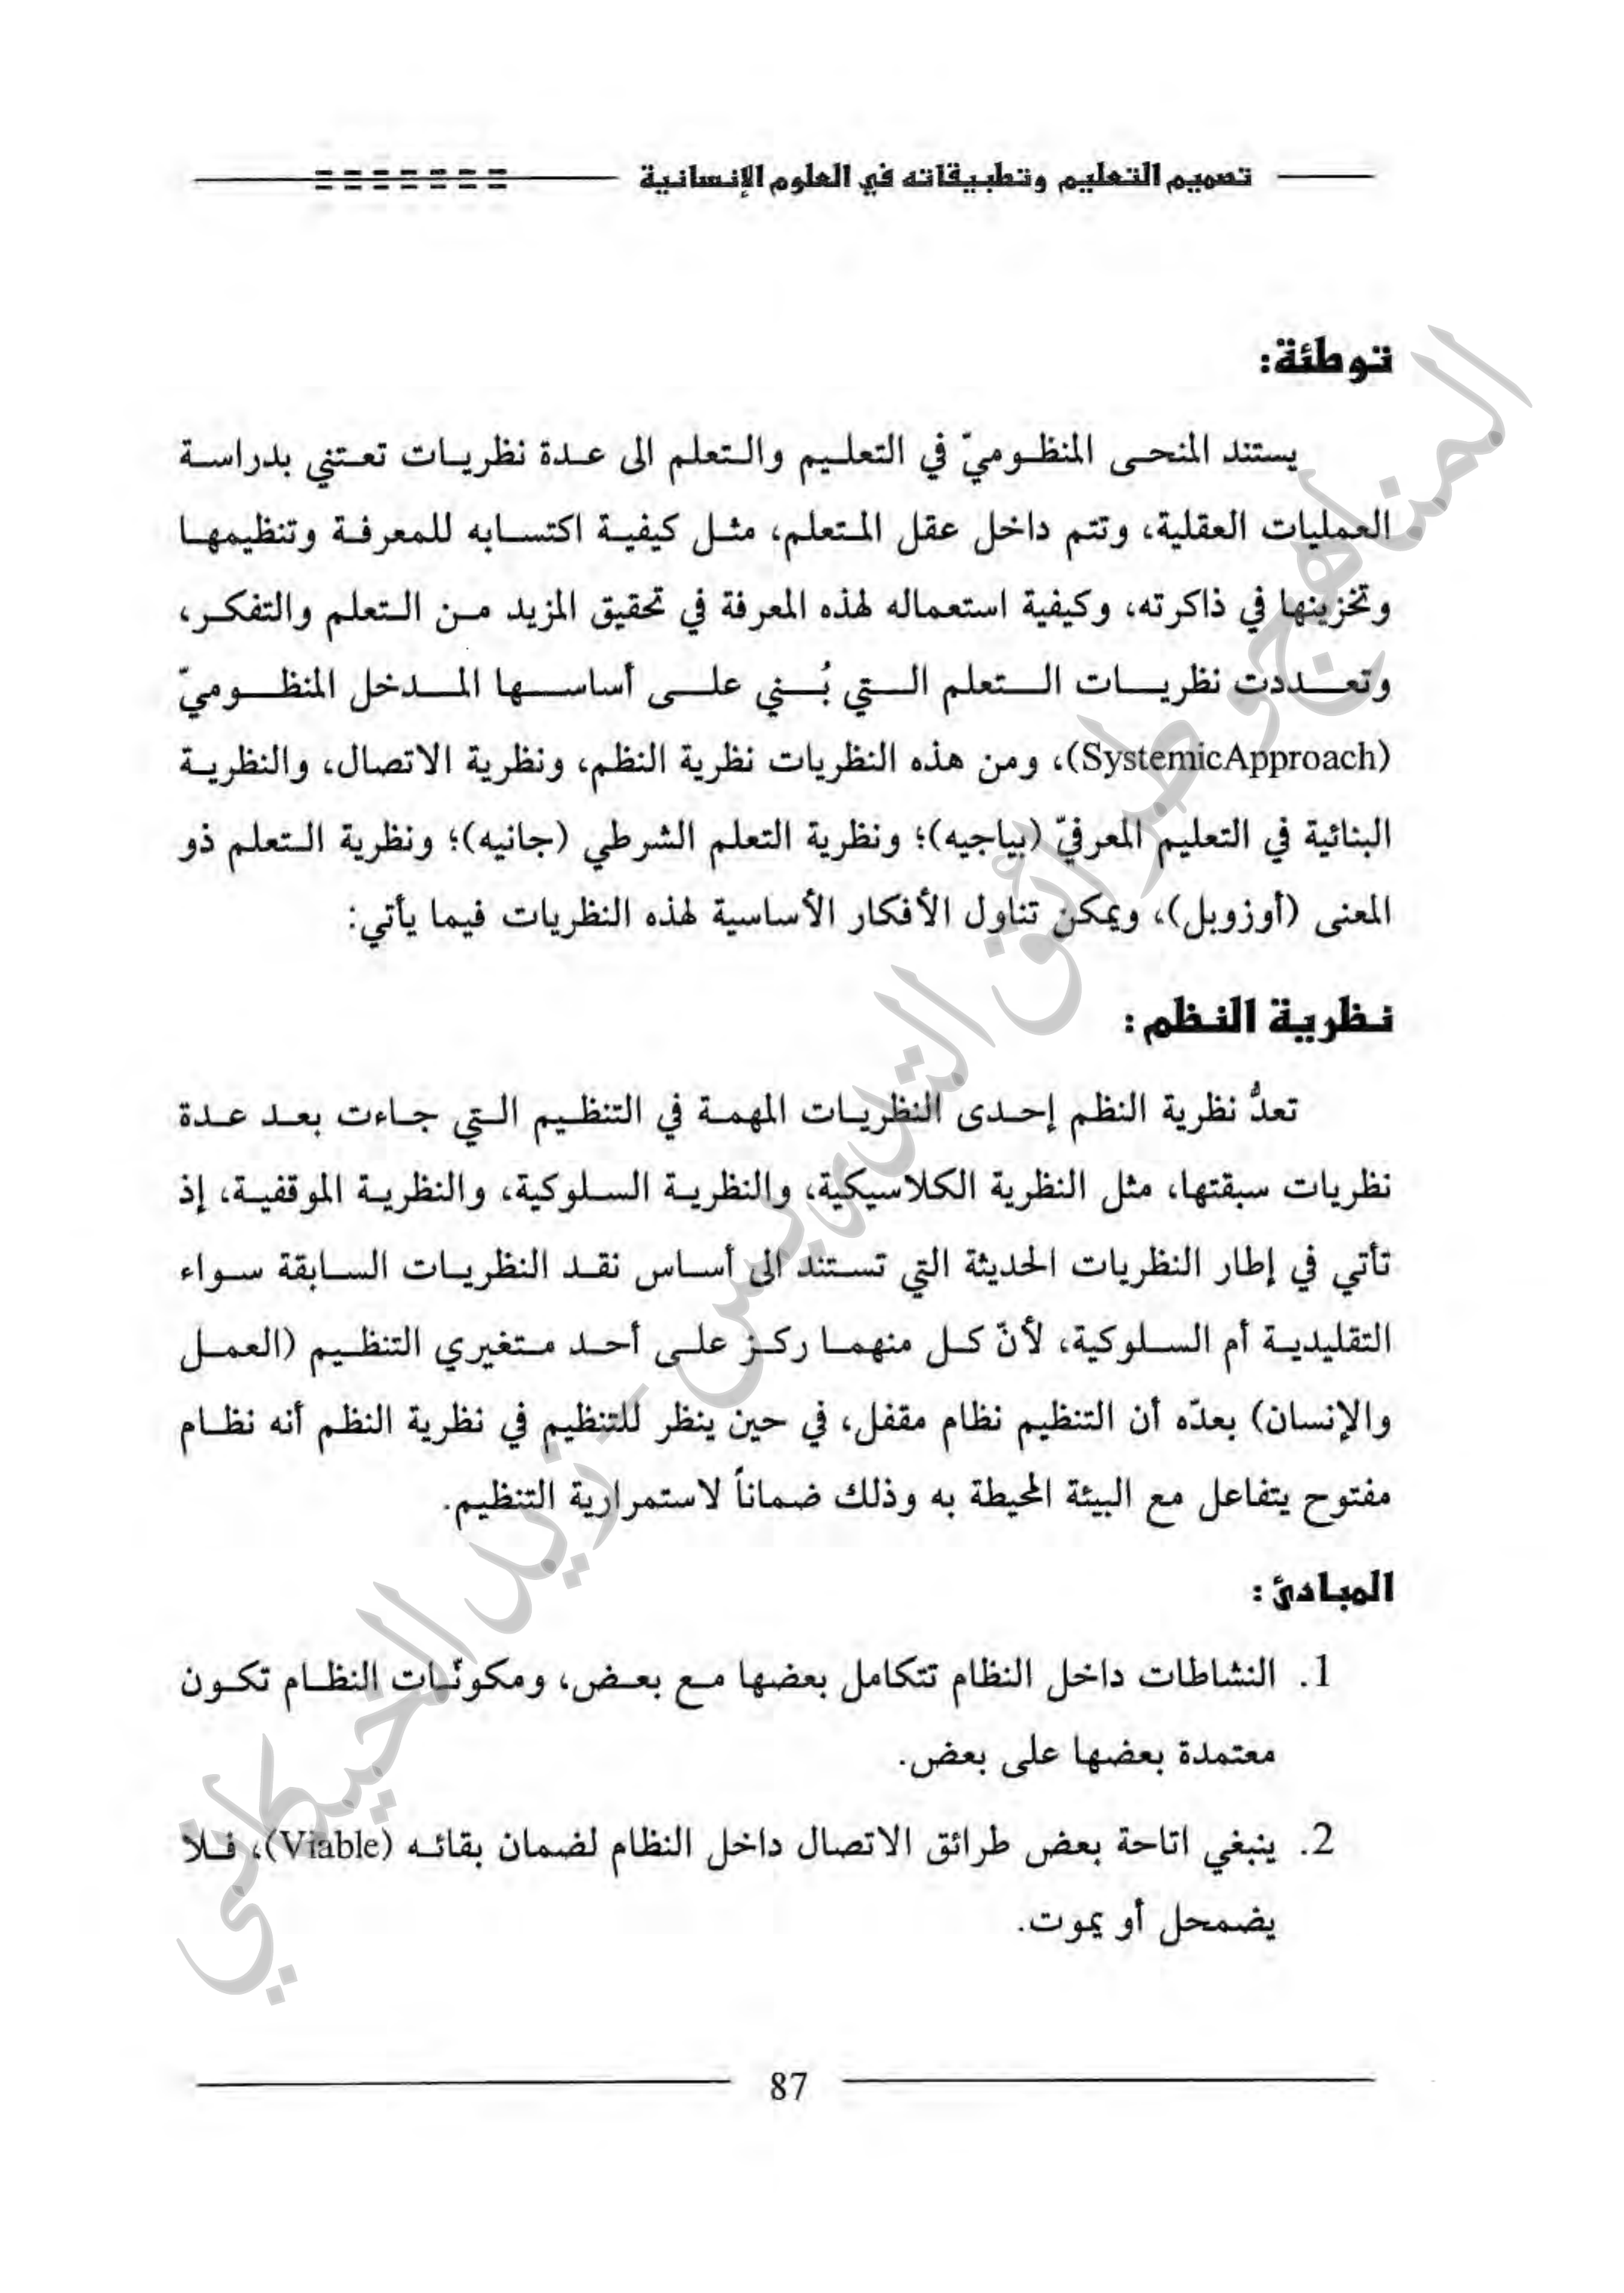 تصميم التعليم وتطبيقاته في العلوم الإنسانية
توطئة:
يستند المنحى المنظوميّ في التعليم والتعلم الى عدة نظريات تعتني بدراسة
العمليات العقلية، وتتم داخل عقل المتعلم، مثل كيفية اكتسابه للمعرفة وتنظيمها
وتخزينها في ذاكرته، وكيفية استعماله لهذه المعرفة في تحقيق المزيد من التعلم والتفكر،
وتعددت نظريات التعلم التي بُني على أساسها المدخل المنظوميّ
(SystemicApproach)، ومن هذه النظريات نظرية النظم، ونظرية الاتصال، والنظرية
البنائية في التعليم المعرفيّ (بياجيه)؛ ونظرية التعلم الشرطي (جانيه)؛ ونظرية التعلم ذو
المعنى (أوزوبل)، ويمكن تناول الأفكار الأساسية لهذه النظريات فيما يأتي:
نظرية النظم:
تعدُّ نظرية النظم إحدى النظريات المهمة في التنظيم التي جاءت بعد عدة
نظريات سبقتها، مثل النظرية الكلاسيكية، والنظرية السلوكية، والنظرية الموقفية، إذ
تأتي في إطار النظريات الحديثة التي تستند الى أساس نقد النظريات السابقة سواء
التقليدية أم السلوكية، لأنّ كل منهما ركز على أحد متغيري التنظيم (العمل
والإنسان) بعدّه أن التنظيم نظام مقفل، في حين ينظر للتنظيم في نظرية النظم أنه نظام
مفتوح يتفاعل مع البيئة المحيطة به وذلك ضماناً لاستمرارية التنظيم.
المبادئ:
1. النشاطات داخل النظام تتكامل بعضها مع بعض، ومكونّات النظام تكون
معتمدة بعضها على بعض.
2. ينبغي اتاحة بعض طرائق الاتصال داخل النظام لضمان بقائه (Viable)، فلا
يضمحل أو يموت.
87
المناهج وطرائق التدريس - زيد الخيكاني